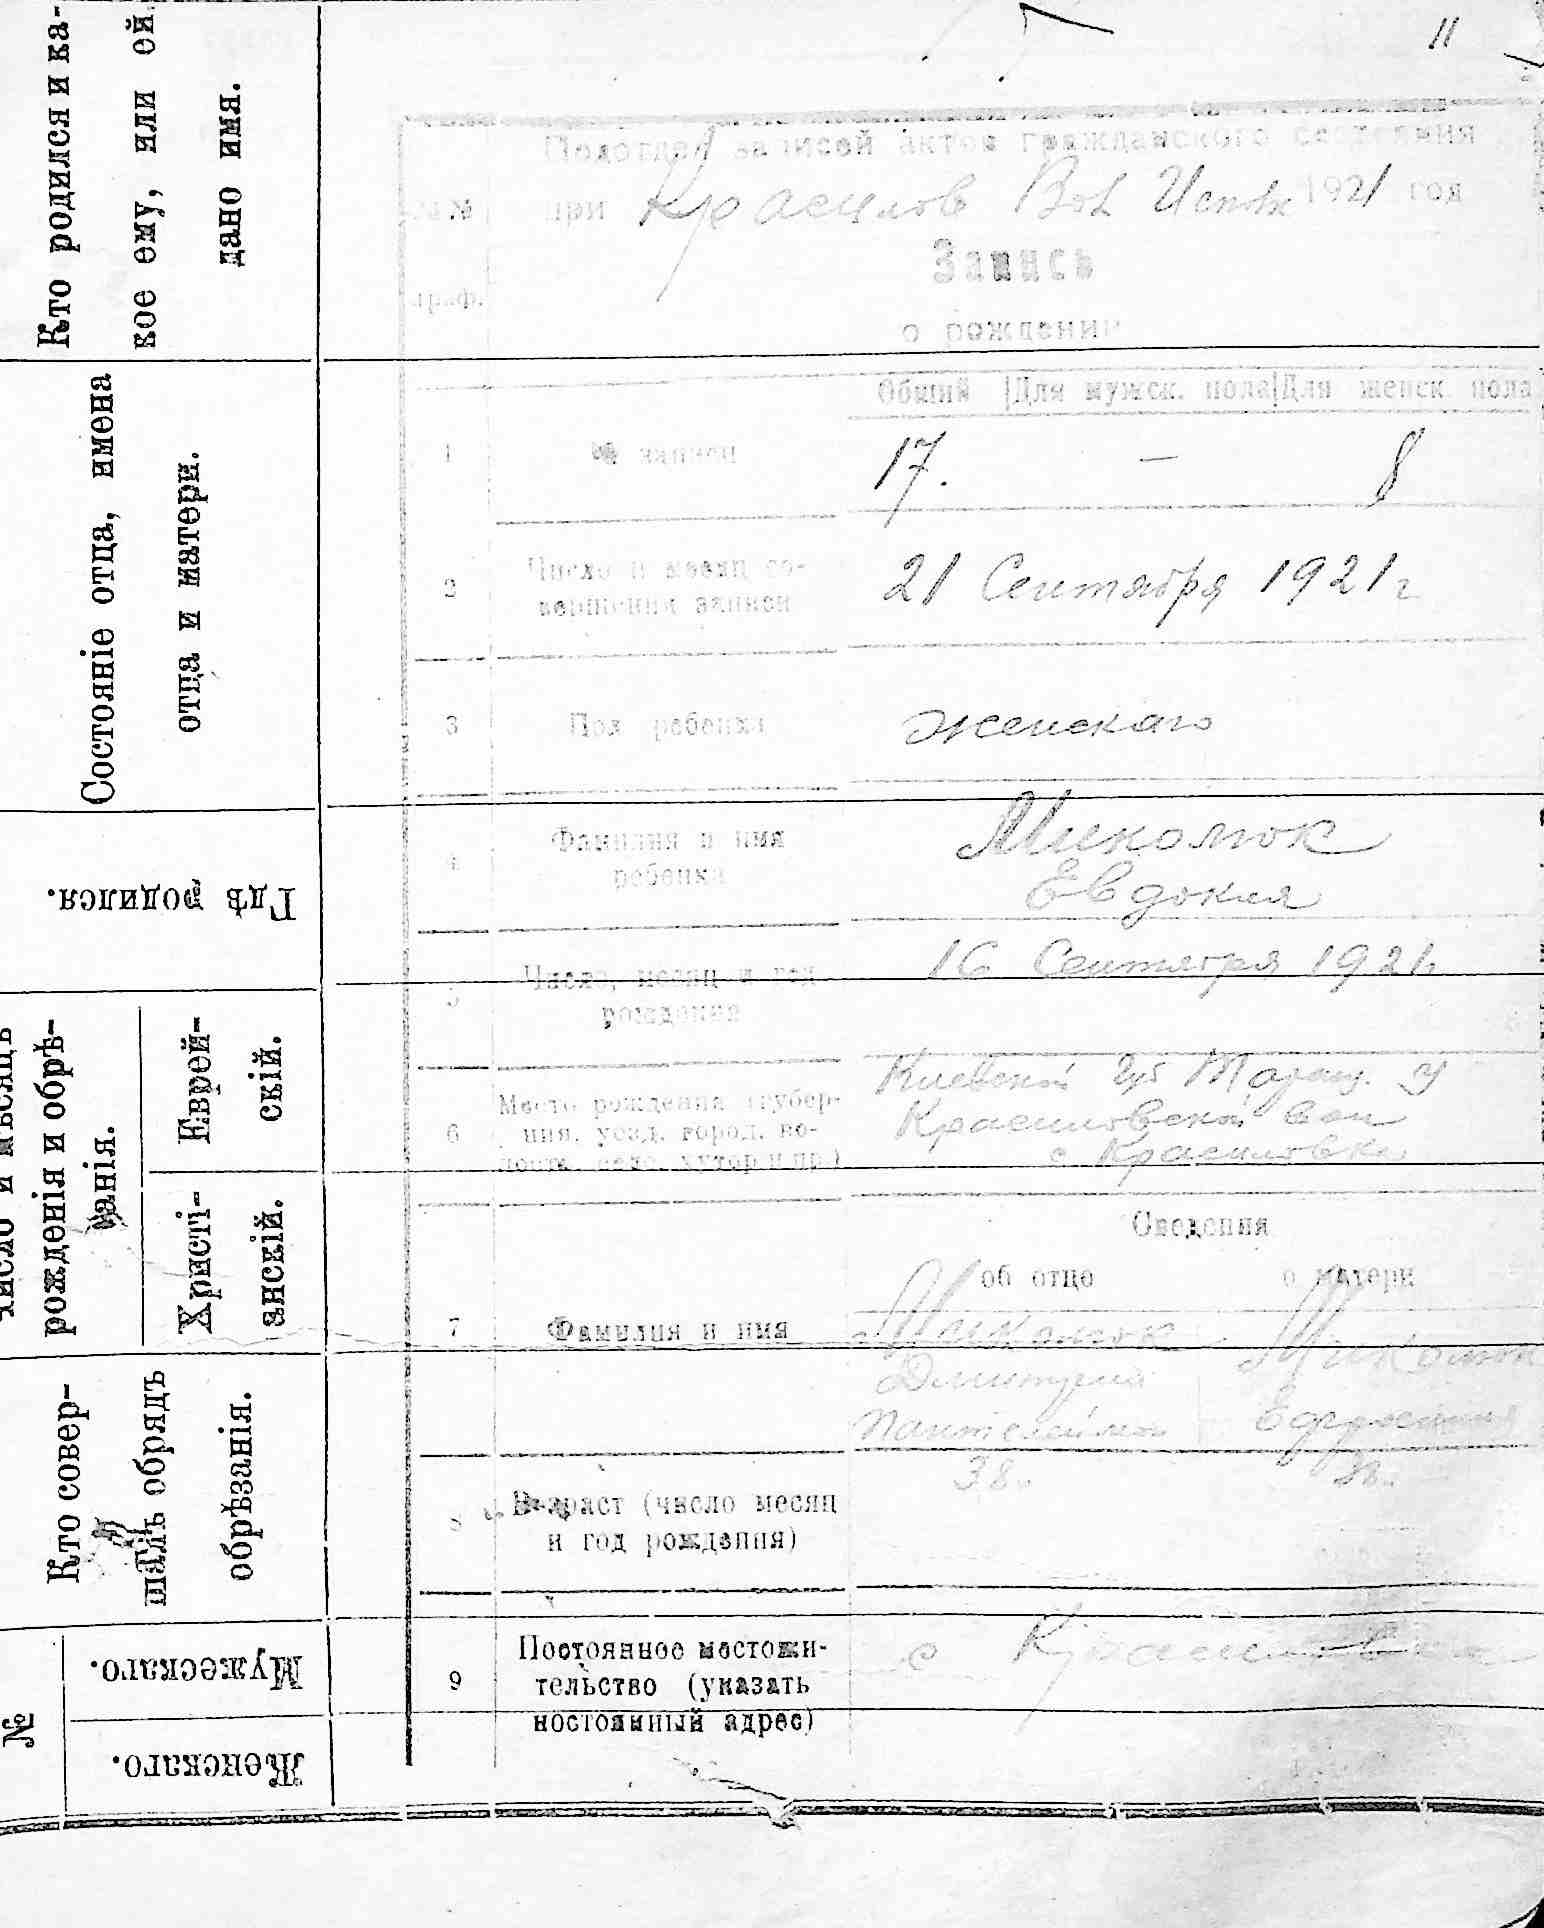 11
Кто родился и ка-
кое ему, или ей
дано имя.
Состояніе отца, имена
отца и матери.
Гдѣ родился.
Число и мѣсяцъ
рожденія и обрѣ-
занія.
Еврей-
скій.
Христі-
анскій.
Кто совер-
шалъ обрядъ
обрѣзанія.
№
Мужескаго.
Женскаго.
Подотдел записей актов гражданского состояния
№№ при Красилов Вол Исполк 1921 год
граф.
Запись
о рождении
Общий Для мужск. пола Для женск. пола
1 № записи 17. — 8
2 Число и месяц со-
вершения записи
21 Сентября 1921 г
3 Пол ребенка женскаго
4 Фамилия и имя
ребенка
Миколюк
Евдокия
5 Число, месяц и год
рождения
16 Сентября 1921
6 Место рождения (губер-
ния, уезд, город, во-
лость, село, хутор и пр.)
Киевской губ Таращ. у
Красиловской вол
с Красиловка
Сведения
об отце о матери
7 Фамилия и имя Миколюк Миколюк
Дмитрий
Пантелеймон Ефросиния
8 Возраст (число месяц
и год рождения)
38.
9 Постоянное местожи-
тельство (указать
постоянный адрес)
с Красиловка